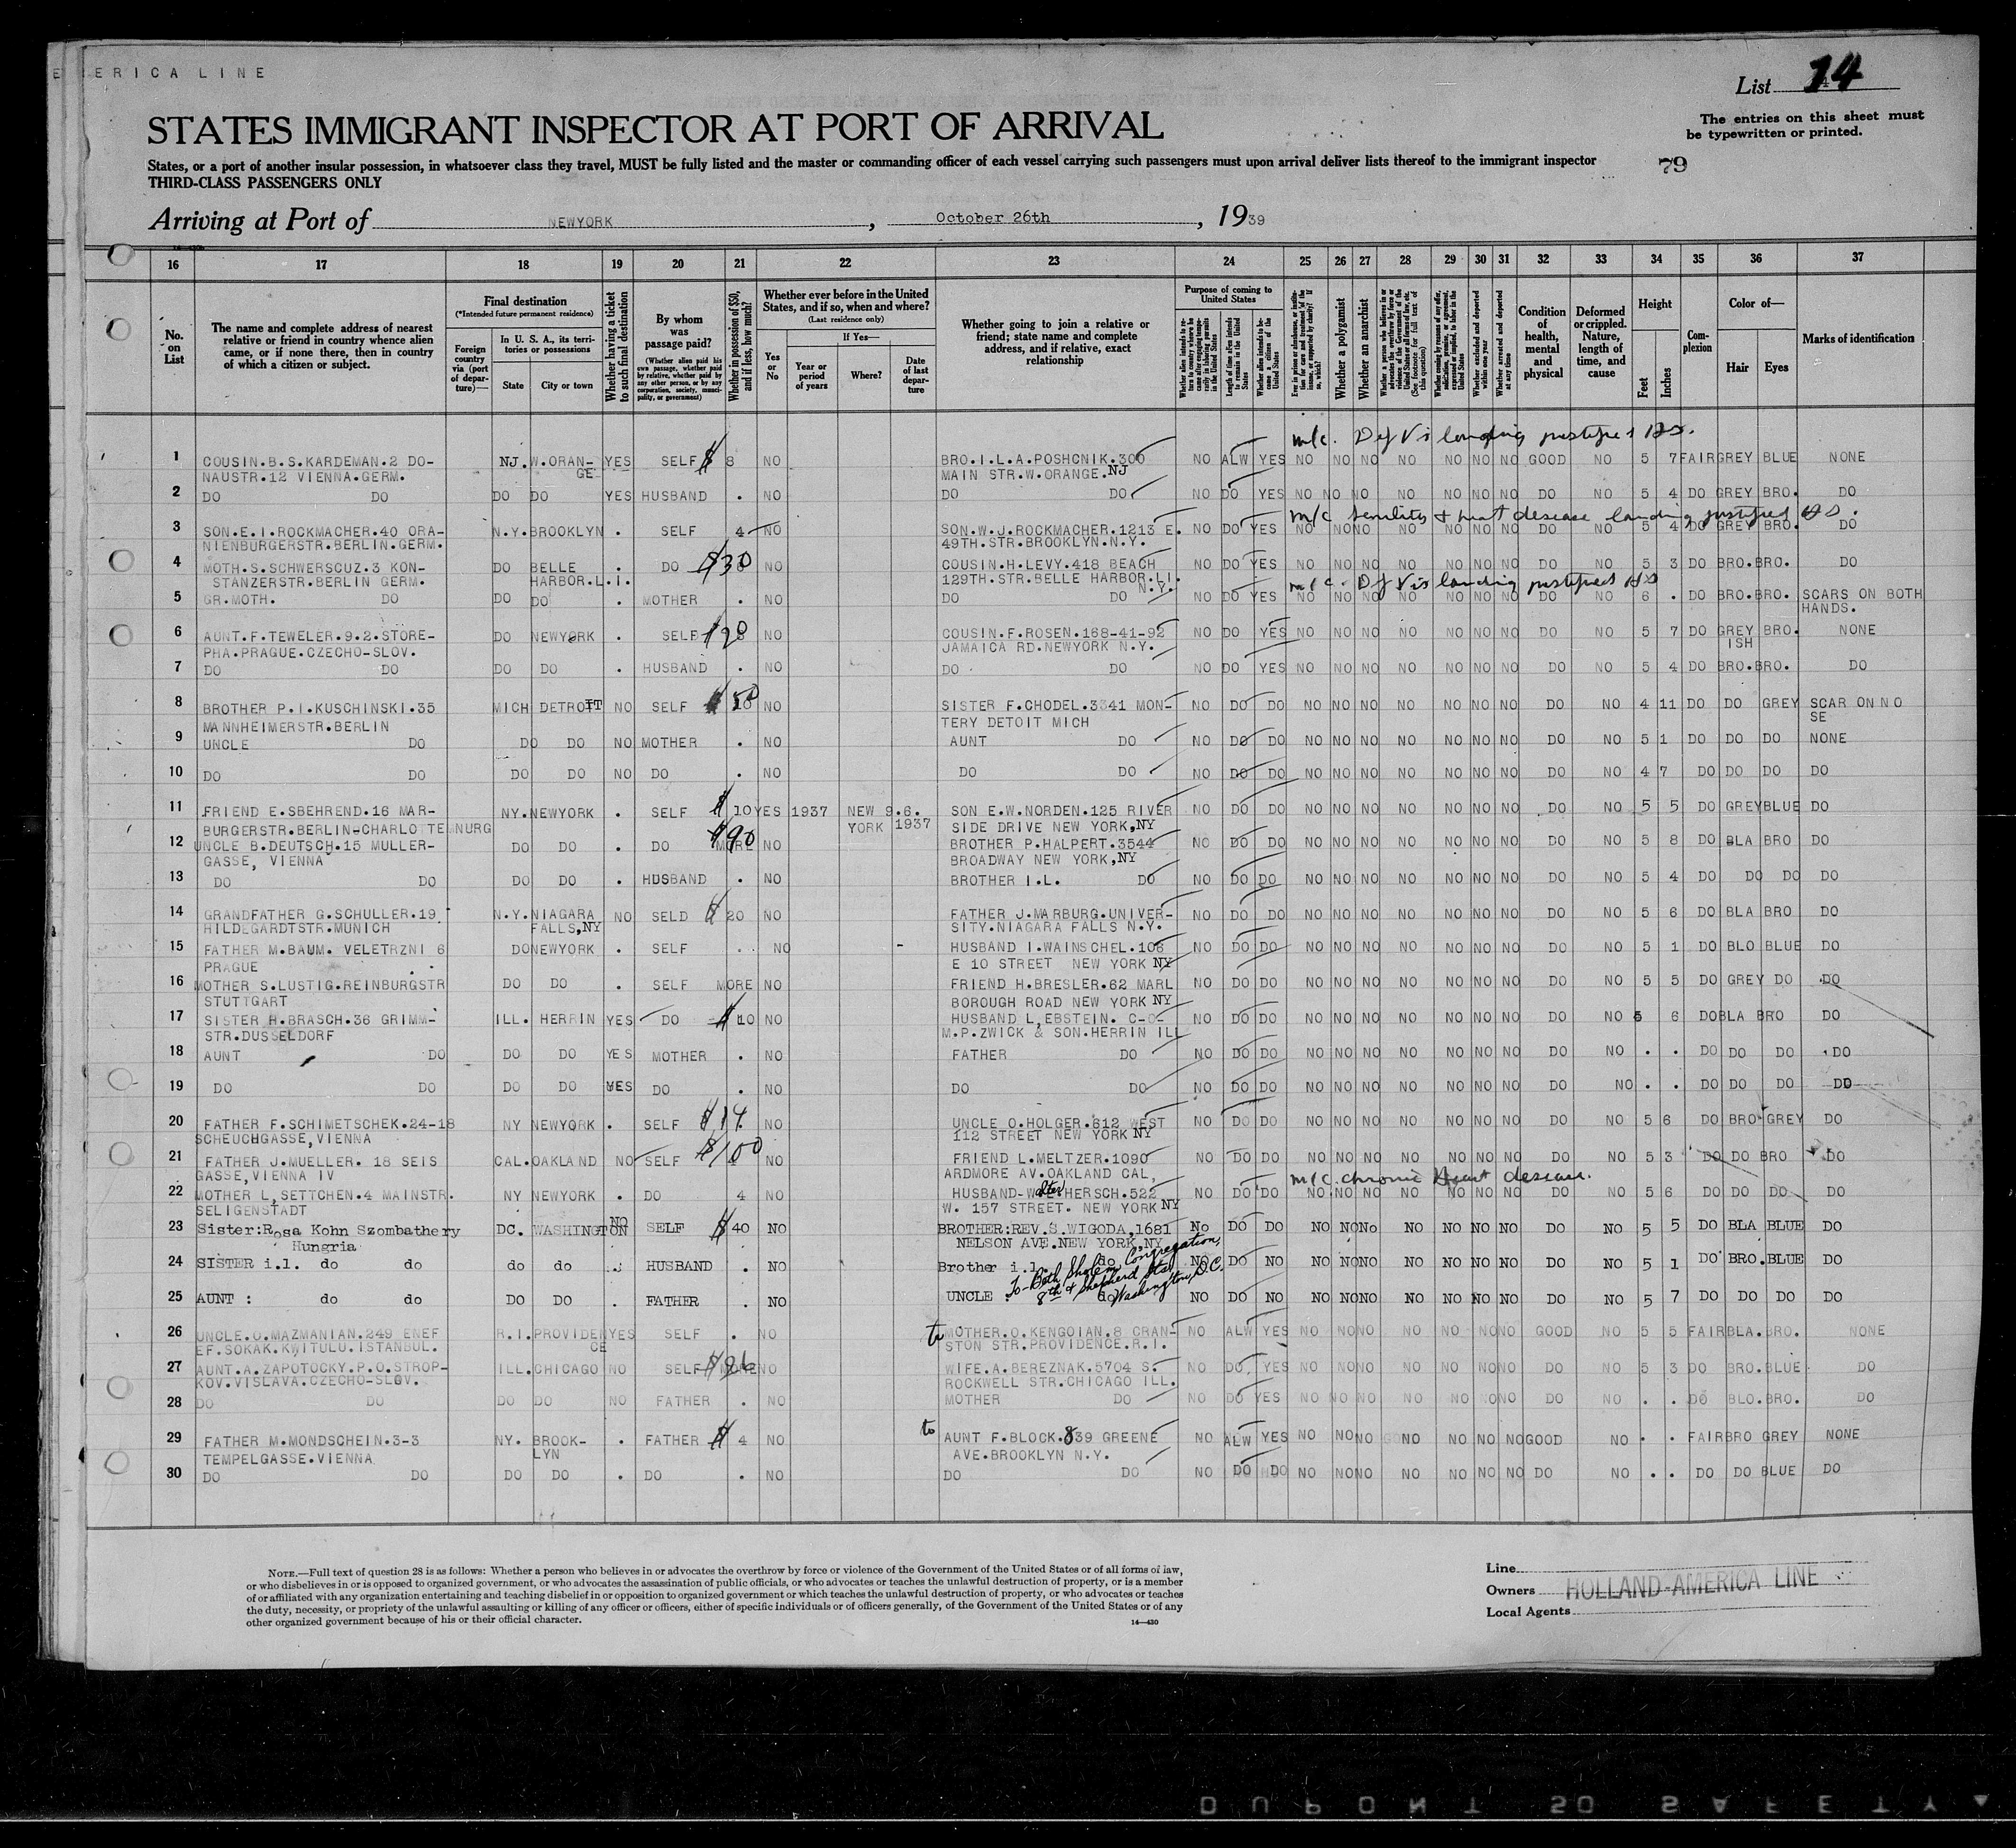 ERICA LINE
List 14
The entries on this sheet must
be typewritten or printed.
STATES IMMIGRANT INSPECTOR AT PORT OF ARRIVAL
States, or a port of another insular possession, in whatsoever class they travel, MUST be fully listed and the master or commanding officer of each vessel carrying such passengers must upon arrival deliver lists thereof to the immigrant inspector
79
THIRD-CLASS PASSENGERS ONLY
Arriving at Port of NEWYORK, October 26th, 1939
16 17 18 19 20 21 22 23 24 25 26 27 28 29 30 31 32 33 34 35 36 37
No. on List
The name and complete address of nearest relative or friend in country whence alien came, or if none there, then in country of which a citizen or subject.
Final destination
(*Intended future permanent residence)
Foreign country via (port of departure)—
In U. S. A., its territories or possessions
State
City or town
Whether having a ticket to such final destination
By whom was passage paid?
(Whether alien paid his own passage, whether paid by relative, whether paid by any other person, or by any corporation, society, municipality, or government)
Whether in possession of $50, and if less, how much?
Whether ever before in the United States, and if so, when and where?
(Last residence only)
Yes or No
If Yes—
Year or period of years
Where?
Date of last departure
Whether going to join a relative or friend; state name and complete address, and if relative, exact relationship
Purpose of coming to United States
Whether a polygamist
Whether an anarchist
Condition of health, mental and physical
Deformed or crippled. Nature, length of time, and cause
Height
Feet
Inches
Complexion
Color of—
Hair
Eyes
Marks of identification
m/c. Def Vis landing justified
1 COUSIN.B.S.KARDEMAN.2 DO- NJ. W.ORAN- YES SELF $ 8 NO BRO.I.L.A.POSHCNIK.300 NO ALW YES NO NO NO NO NO NO NO GOOD NO 5 7 FAIR GREY BLUE NONE
NAUSTR.12 VIENNA.GERM. GE MAIN STR.W.ORANGE.NJ
2 DO DO DO DO YES HUSBAND . NO DO DO NO DO YES NO NO NO NO NO NO NO DO NO 5 4 DO GREY BRO. DO
m/c senility + heart desease landing justified
3 SON.E.I.ROCKMACHER.40 ORA- N.Y. BROOKLYN . SELF 4 NO SON.W.J.ROCKMACHER.1213 E. NO DO YES NO NO NO NO NO NO NO DO NO 5 4 DO GREY BRO. DO
NIENBURGERSTR.BERLIN.GERM. 49TH.STR.BROOKLYN.N.Y.
4 MOTH.S.SCHWERSCUZ.3 KON- DO BELLE . DO $30 NO COUSIN.H.LEVY.418 BEACH NO DO YES NO NO NO NO NO NO NO DO NO 5 3 DO BRO. BRO. DO
STANZERSTR.BERLIN GERM. HARBOR.L.I. 129TH.STR.BELLE HARBOR.LI.
N.Y.
m/c. Def Vis landing justified
5 GR.MOTH. DO DO DO . MOTHER . NO DO DO NO DO YES NO NO NO NO NO NO NO DO NO 6 . DO BRO. BRO. SCARS ON BOTH
HANDS.
6 AUNT.F.TEWELER.9.2.STORE- DO NEWYORK . SELF NO COUSIN.F.ROSEN.168-41-92 NO DO YES NO NO NO NO NO NO NO DO NO 5 7 DO GREY BRO. NONE
PHA.PRAGUE.CZECHO-SLOV. JAMAICA RD.NEWYORK N.Y. ISH
7 DO DO DO DO . HUSBAND . NO DO DO NO DO YES NO NO NO NO NO NO NO DO NO 5 4 DO BRO. BRO. DO
8 BROTHER P.I.KUSCHINSKI.35 MICH DETROIT NO SELF $50 NO SISTER F.CHODEL.3341 MON- NO DO DO NO NO NO NO NO NO NO DO NO 4 11 DO DO GREY SCAR ON NO
MANNHEIMERSTR.BERLIN TERY DETOIT MICH SE
9 UNCLE DO DO DO NO MOTHER . NO AUNT DO NO DO DO NO NO NO NO NO NO NO DO NO 5 1 DO DO DO NONE
10 DO DO DO DO NO DO . NO DO DO NO DO DO NO NO NO NO NO NO NO DO NO 4 7 DO DO DO DO
11 FRIEND E.SBEHREND.16 MAR- NY. NEWYORK . SELF $ 10 YES 1937 NEW 9.6. SON E.W.NORDEN.125 RIVER NO DO DO NO NO NO NO NO NO NO DO NO 5 5 DO GREY BLUE DO
BURGERSTR.BERLIN-CHARLOTTEMNURG YORK 1937 SIDE DRIVE NEW YORK,NY
12 UNCLE B.DEUTSCH.15 MULLER- DO DO . DO $90 NO BROTHER P.HALPERT.3544 NO DO DO NO NO NO NO NO NO NO DO NO 5 8 DO BLA BRO DO
GASSE, VIENNA BROADWAY NEW YORK,NY
13 DO DO DO DO . HUSBAND . NO BROTHER I.L. DO NO DO DO NO NO NO NO NO NO NO DO NO 5 4 DO DO DO DO
14 GRANDFATHER G.SCHULLER.19 N.Y. NIAGARA NO SELD $ 20 NO FATHER J.MARBURG.UNIVER- NO DO DO NO NO NO NO NO NO NO DO NO 5 6 DO BLA BRO DO
HILDEGARDTSTR.MUNICH FALLS,NY SITY.NIAGARA FALLS N.Y.
15 FATHER M.BAUM. VELETRZNI 6 DO NEWYORK . SELF . NO - HUSBAND I.WAINSCHEL.106 NO DO DO NO NO NO NO NO NO NO DO NO 5 1 DO BLO BLUE DO
PRAGUE E 10 STREET NEW YORK NY
16 MOTHER S.LUSTIG.REINBURGSTR DO DO . SELF MORE NO FRIEND H.BRESLER.62 MARL NO DO DO NO NO NO NO NO NO NO DO NO 5 5 DO GREY DO DO
STUTTGART BOROUGH ROAD NEW YORK NY
17 SISTER H.BRASCH.36 GRIMM- ILL. HERRIN YES DO $ 10 NO HUSBAND L,EBSTEIN. C-O- NO DO DO NO NO NO NO NO NO NO DO NO 5 6 DO BLA BRO DO
STR.DUSSELDORF M.P.ZWICK & SON.HERRIN ILL
18 AUNT DO DO DO YES MOTHER . NO FATHER DO NO DO DO NO NO NO NO NO NO NO DO NO . . DO DO DO DO
19 DO DO DO DO YES DO . NO DO DO NO DO DO NO NO NO NO NO NO NO DO NO . . DO DO DO DO
20 FATHER F.SCHIMETSCHEK.24-18 NY NEWYORK . SELF $14. NO UNCLE O.HOLGER.612 WEST NO DO DO NO NO NO NO NO NO NO DO NO 5 6 DO BRO GREY DO
SCHEUCHGASSE,VIENNA 112 STREET NEW YORK NY
21 FATHER J.MUELLER. 18 SEIS CAL. OAKLAND NO SELF $100 NO FRIEND L.MELTZER.1090 NO DO DO NO NO NO NO NO NO NO DO NO 5 3 DO DO BRO DO
GASSE,VIENNA IV ARDMORE AV.OAKLAND CAL,
m/c. chronic Heart desease.
22 MOTHER L,SETTCHEN.4 MAINSTR. NY NEWYORK . DO 4 NO HUSBAND-Walter HERSCH.522 NO DO DO NO NO NO NO NO NO NO DO NO 5 6 DO DO DO DO
SELIGENSTADT W. 157 STREET. NEW YORK NY
23 Sister:Rosa Kohn Szombathery DC. WASHINGTON NO SELF $ 40 NO BROTHER:REV.S.WIGODA,1681 No DO DO NO NO No NO NO NO NO DO NO 5 5 DO BLA BLUE DO
Hungria NELSON AVE.NEW YORK,NY
24 SISTER i.l. do do do do . HUSBAND . NO Brother i.l. do NO DO NO NO NO NO NO NO NO NO DO NO 5 1 DO BRO. BLUE DO
To-Beth Sholem Congregation,
8th & Shepherd Sts
Washington, D.C.
25 AUNT : do do DO DO . FATHER . NO UNCLE : do NO DO NO NO NO NO NO NO NO NO DO NO 5 7 DO DO DO DO
26 UNCLE.O.MAZMANIAN.249 ENEF R.I. PROVIDEN YES SELF . NO to MOTHER.O.KENGOIAN.8 CRAN- NO ALW YES NO NO NO NO NO NO NO GOOD NO 5 5 FAIR BLA. BRO. NONE
EF.SOKAK.KWITULU.ISTANBUL. CE STON STR.PROVIDENCE.R.I.
27 AUNT.A.ZAPOTOCKY.P.O.STROP- ILL. CHICAGO NO SELF NO WIFE.A.BEREZNAK.5704 S. NO DO. YES NO NO NO NO NO NO NO DO NO 5 3 DO BRO. BLUE. DO
KOV.VISLAVA.CZECHO-SLOV. ROCKWELL STR.CHICAGO ILL.
28 DO DO DO DO NO FATHER . NO MOTHER DO NO DO YES NO NO NO NO NO NO NO DO NO . . DO BLO. BRO. DO
29 FATHER M.MONDSCHEIN.3-3 NY. BROOK- . FATHER $ 4 NO to AUNT F.BLOCK.839 GREENE NO ALW YES NO NO NO NO NO NO NO GOOD NO . . FAIR BRO GREY NONE
TEMPELGASSE.VIENNA LYN AVE.BROOKLYN N.Y.
30 DO DO DO DO . DO . NO DO DO NO DO DO NO NO NO NO NO NO NO DO NO . . DO DO BLUE DO
NOTE.—Full text of question 28 is as follows: Whether a person who believes in or advocates the overthrow by force or violence of the Government of the United States or of all forms of law,
or who disbelieves in or is opposed to organized government, or who advocates the assassination of public officials, or who advocates or teaches the unlawful destruction of property, or is a member
of or affiliated with any organization entertaining and teaching disbelief in or opposition to organized government or which teaches the unlawful destruction of property, or who advocates or teaches
the duty, necessity, or propriety of the unlawful assaulting or killing of any officer or officers, either of specific individuals or of officers generally, of the Government of the United States or of any
other organized government because of his or their official character.
14—430
Line
Owners HOLLAND-AMERICA LINE
Local Agents
DUPONT SO SAFETY